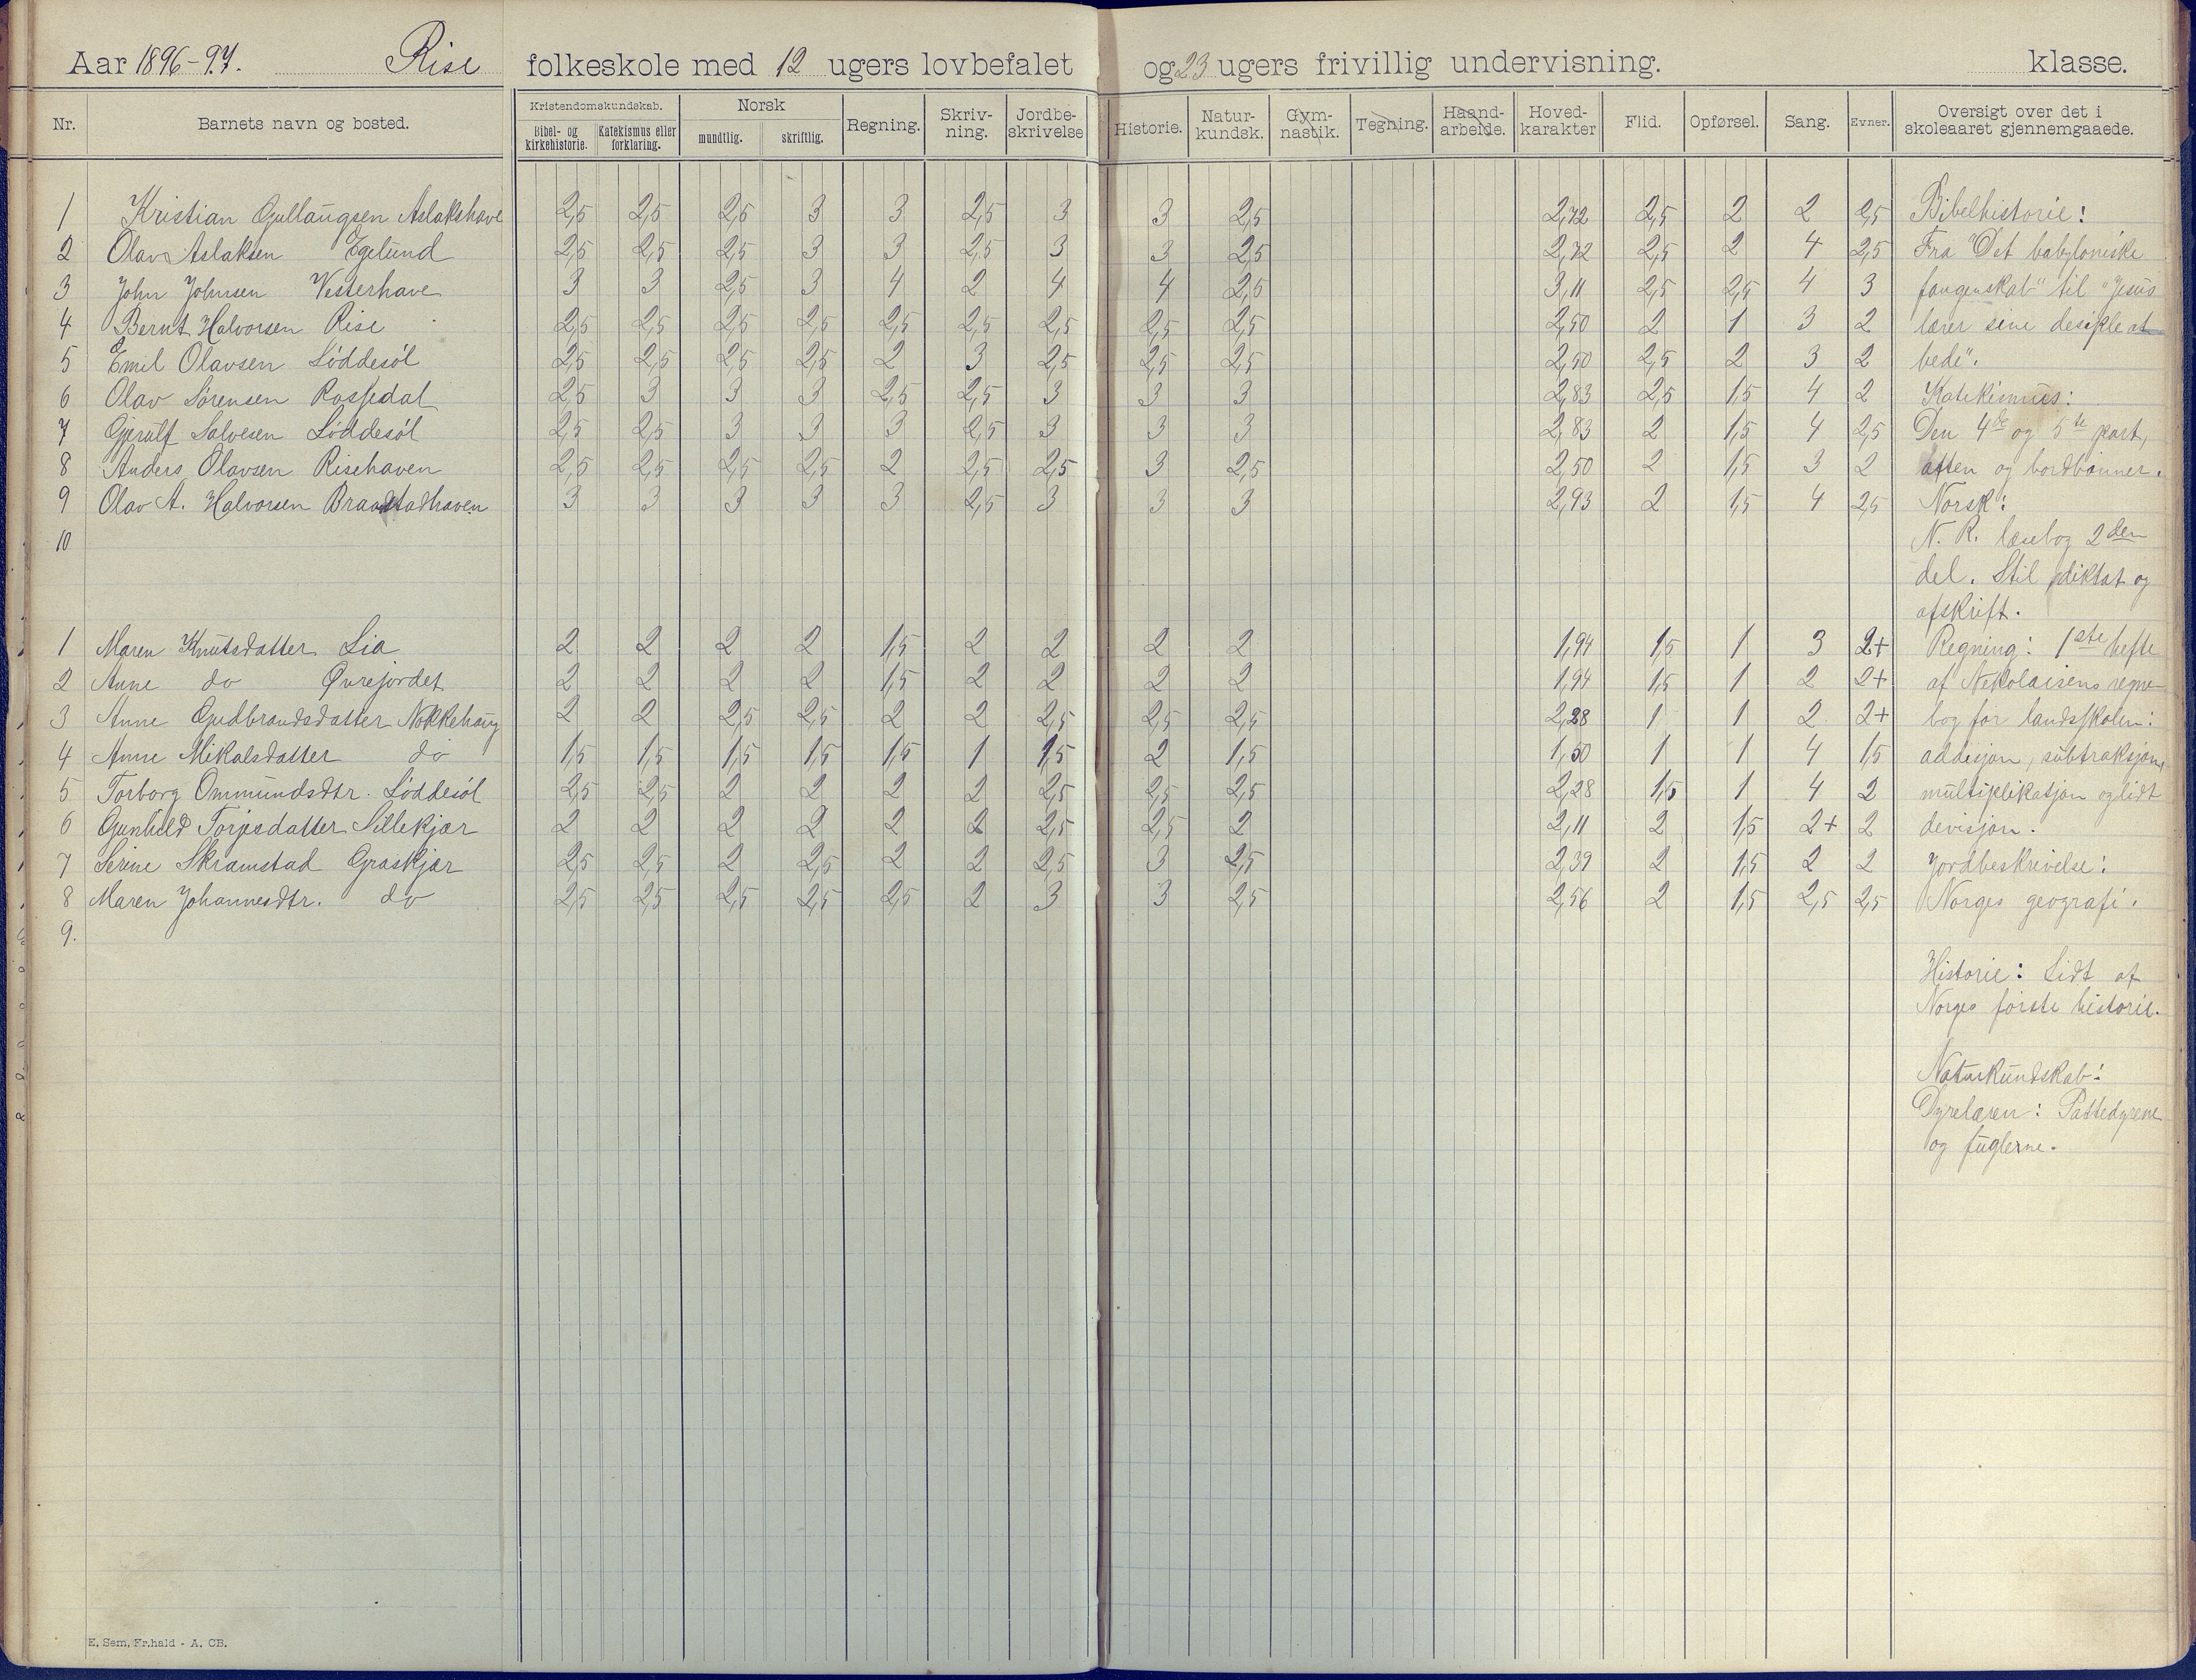 Aar 1896-97. Rise folkeskole med 12 ugers lovbefalet og 23 ugers frivillig undervisning. klasse.
Nr. Barnets navn og bosted. Kristendomskundskab. Bibel- og kirkehistorie. Katekismus eller forklaring. Norsk mundtlig. skriftlig. Regning. Skriv-ning. Jordbe-skrivelse Historie. Natur-kundsk. Gym-nastik. Tegning. Haand-arbeide. Hoved-karakter Flid. Opførsel. Sang. Evner. Oversigt over det i skoleaaret gjennemgaaede.
1 Kristian Gullaugsen Aslakshave 2,5 2,5 2,5 3 3 2,5 3 3 2,5 2,72 2,5 2 2 2,5
2 Olav Aslaksen Egelund 2,5 2,5 2,5 3 3 2,5 3 3 2,5 2,72 2,5 2 4 2,5
3 John Johnsen Vesterhave 3 3 2,5 3 4 2 4 4 2,5 3,11 2,5 2,5 4 3
4 Bernt Halvorsen Rise 2,5 2,5 2,5 2,5 2,5 2,5 2,5 2,5 2,5 2,50 2 1 3 2
5 Emil Olavsen Løddesøl 2,5 2,5 2,5 2,5 2 3 2,5 2,5 2,5 2,50 2,5 2 3 2
6 Olav Sørensen Rossedal 2,5 3 3 3 2,5 2,5 3 3 3 2,83 2,5 1,5 4 2
7 Gjerulf Salvesen Løddesøl 2,5 2,5 3 3 3 2,5 3 3 3 2,83 2 1,5 4 2,5
8 Anders Olavsen Risehaven 2,5 2,5 2,5 2,5 2 2,5 2,5 3 2,5 2,50 2 1,5 3 2
9 Olav A. Halvorsen Braastadhaven 3 3 3 3 3 2,5 3 3 3 2,93 2 1,5 4 2,5
10
1 Maren Knutsdatter Lia 2 2 2 2 1,5 2 2 2 2 1,94 1,5 1 3 2+
2 Anne do Øvrejordet 2 2 2 2 1,5 2 2 2 2 1,94 1,5 1 2 2+
3 Anne Gudbrandsdatter Nokkehaug 2 2 2,5 2,5 2 2 2,5 2,5 2,5 2,28 1 1 2 2+
4 Anne Mikalsdatter do 1,5 1,5 1,5 1,5 1,5 1 1,5 2 1,5 1,50 1 1 4 1,5
5 Torborg Ommundsdtr. Løddesøl 2,5 2,5 2 2 2 2 2,5 2,5 2,5 2,28 1,5 1 4 2
6 Gunhild Torjesdatter Sillekjær 2 2 2 2 2 2 2,5 2,5 2 2,11 2 1,5 2+ 2
7 Serine Skramstad Graskjær 2,5 2,5 2 2,5 2 2 2,5 3 2,5 2,39 2 1,5 2 2
8 Maren Johannesdtr. do 2,5 2,5 2,5 2,5 2,5 2 3 3 2,5 2,56 2 1,5 2,5 2,5
9.
Bibelhistorie:
Fra "Det babyloniske
fangenskab" til "Jesus
lærer sine desiple at
bede".
Katekismus:
Den 4de og 5te part,
aften og bordbønner.
Norsk:
N. R. læsebog 2den
del. Stil diktat og
afskrift.
Regning: 1ste hefte
af Nekolaisens regne-
bog for landsskolen:
addisjon, subtraksjon,
multiplikasjon og lidt
devisjon.
Jordbeskrivelse:
Norges geografi.
Historie: Lidt af
Norges første historie.
Naturkundskab:
Dyrelæren: Pattedyrene
og fuglerne.
E. Sem, Fr.hald - A. CB.